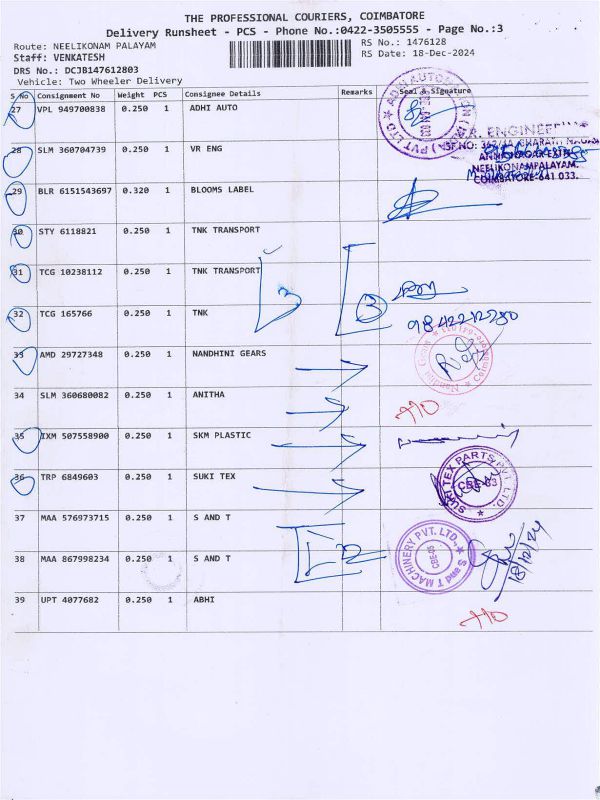 THE PROFESSIONAL COURIERS, COIMBATORE
Delivery Runsheet - PCS - Phone No.:0422-3505555 - Page No.:3
Route: NEELIKONAM PALAYAM
RS No.: 1476128
Staff: VENKATESH
RS Date: 18-Dec-2024
DRS No.: DCJB147612803
Vehicle: Two Wheeler Delivery
S No Consignment No Weight PCS Consignee Details Remarks Seal & Signature
27 VPL 949700838 0.250 1 ADHI AUTO
28 SLM 360704739 0.250 1 VR ENG
ENGINEERING
NEELIKONAMPALAYAM.
COIMBATORE-641 033.
29 BLR 6151543697 0.320 1 BLOOMS LABEL
30 STY 6118821 0.250 1 TNK TRANSPORT
31 TCG 10238112 0.250 1 TNK TRANSPORT
3
3
32 TCG 165766 0.250 1 TNK
9842212980
33 AMD 29727348 0.250 1 NANDHINI GEARS
34 SLM 360680082 0.250 1 ANITHA
35 IXM 507558900 0.250 1 SKM PLASTIC
36 TRP 6849603 0.250 1 SUKI TEX
SUKI TEX PARTS PVT. LTD.
37 MAA 576973715 0.250 1 S AND T
S and T MACHINERY PVT. LTD.,
18/12/24
38 MAA 867998234 0.250 1 S AND T
2
39 UPT 4077682 0.250 1 ABHI